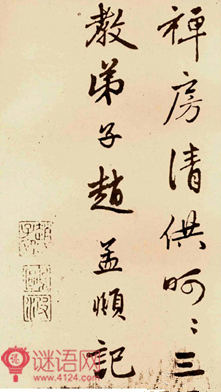 禅房清供呵呵三
教弟子趙孟頫記
谜语网
www.4124.com